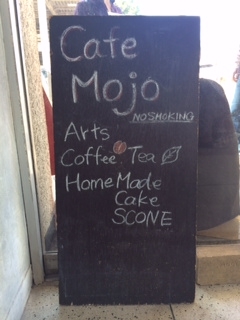 Cafe
Mojo
NO SMOKING
Arts
Coffee. Tea
HomeMade
Cake
SCONE